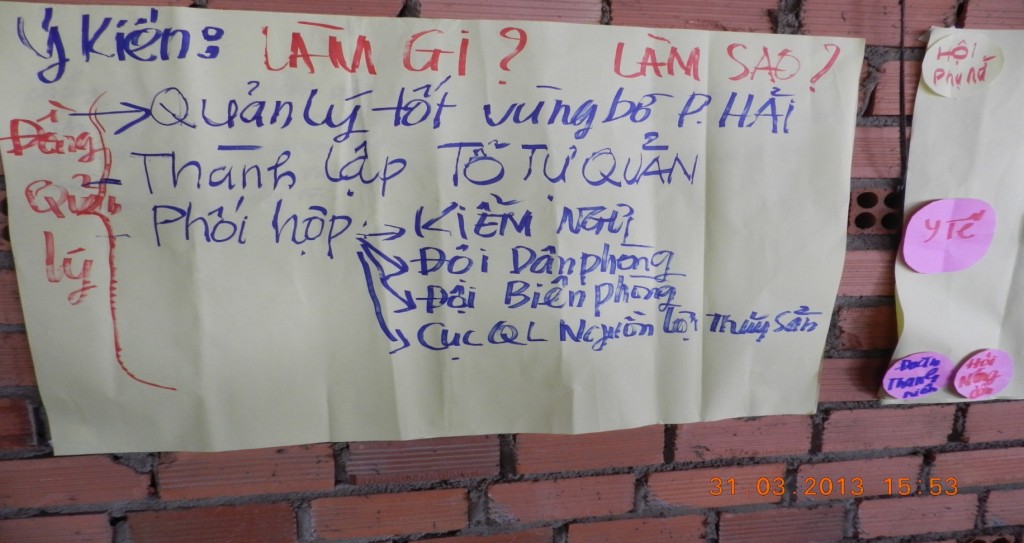 Ý Kiến: LÀM GÌ? LÀM SAO?
Đồng
Quản
lý
→ Quản lý tốt vùng bờ P. HẢI
- Thành lập TỔ TỰ QUẢN
- Phối hợp: → KIỂM NGƯ
→ Đội Dân phòng
→ Đội Biên phòng
→ Cục QL Nguồn lợi Thủy Sản
Hội
Phụ nữ
Y Tế
Đoàn
Thanh
Niên
Hội
Nông
dân
31 03 2013 15:53